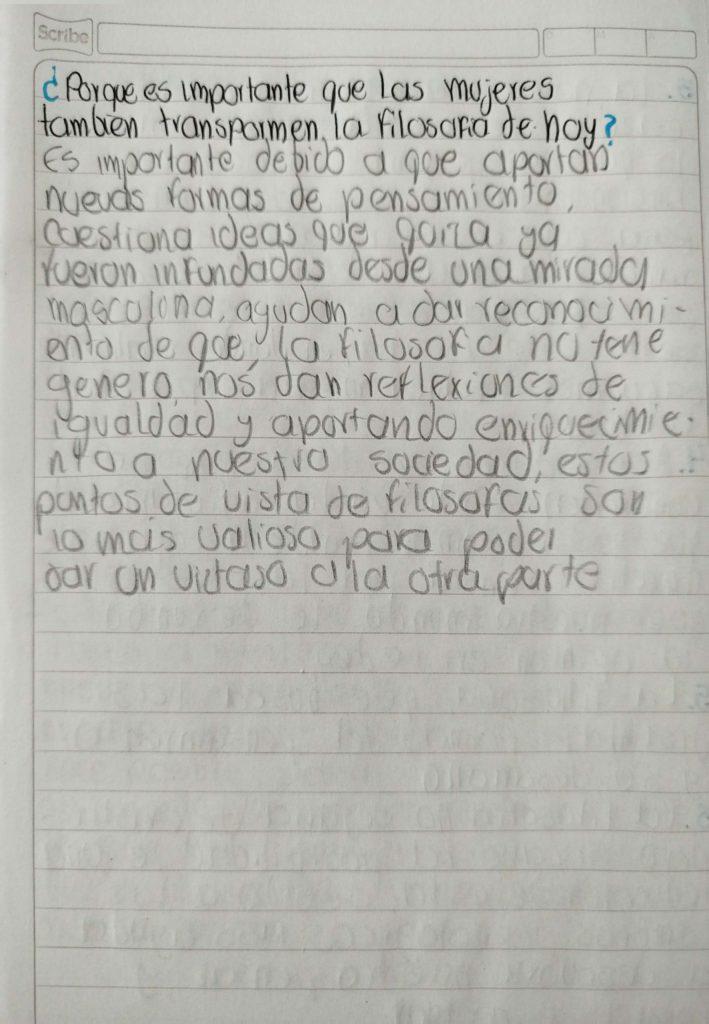 Scribe
¿Porque es importante que las mujeres
tambien transpormen la filosofia de hoy?
Es importante debido a que aportan
nuevas formas de pensamiento,
cuestiona ideas que quiza ya
fueron infundadas desde una mirada
masculina, ayudan a dar reconocimi-
ento de que la filosofa no tene
genero, nos dan reflexiones de
igualdad y aportando enriquecimie-
nto a nuestra sociedad, estos
puntos de vista de filosofas son
lo mas valioso para poder
dar un a la otra parte